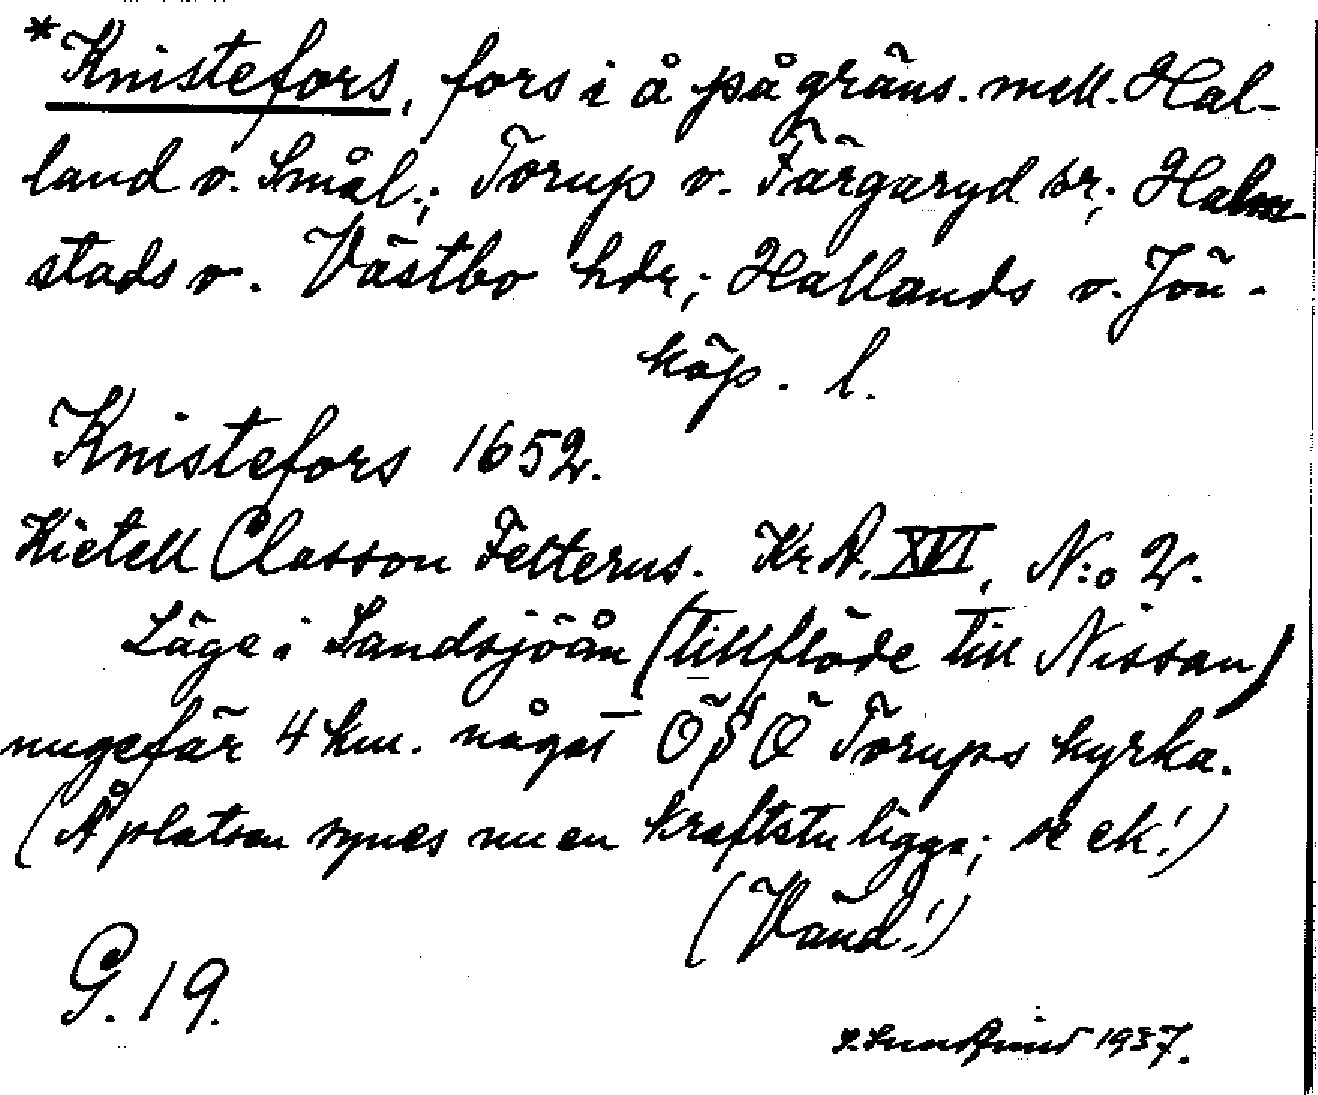 *Knistefors, fors i å på gräns. mell. Hal-
land o. Smål.; Torup o. Färgaryd sr; Halm-
stads o. Västbo hdr; Hallands o. Jön-
köp. l.
Knistefors 1652.
Kietell Classon Felterus. Kr A. XVI, N:o 2.
Läge i Sandsjöån (tillflöde till Nissan)
ungefär 4 km. något Ö § Ö Torups kyrka.
(Å platsen synes nu en kraftstn ligga; se ek!)
(Vänd!)
G. 19.
1937.